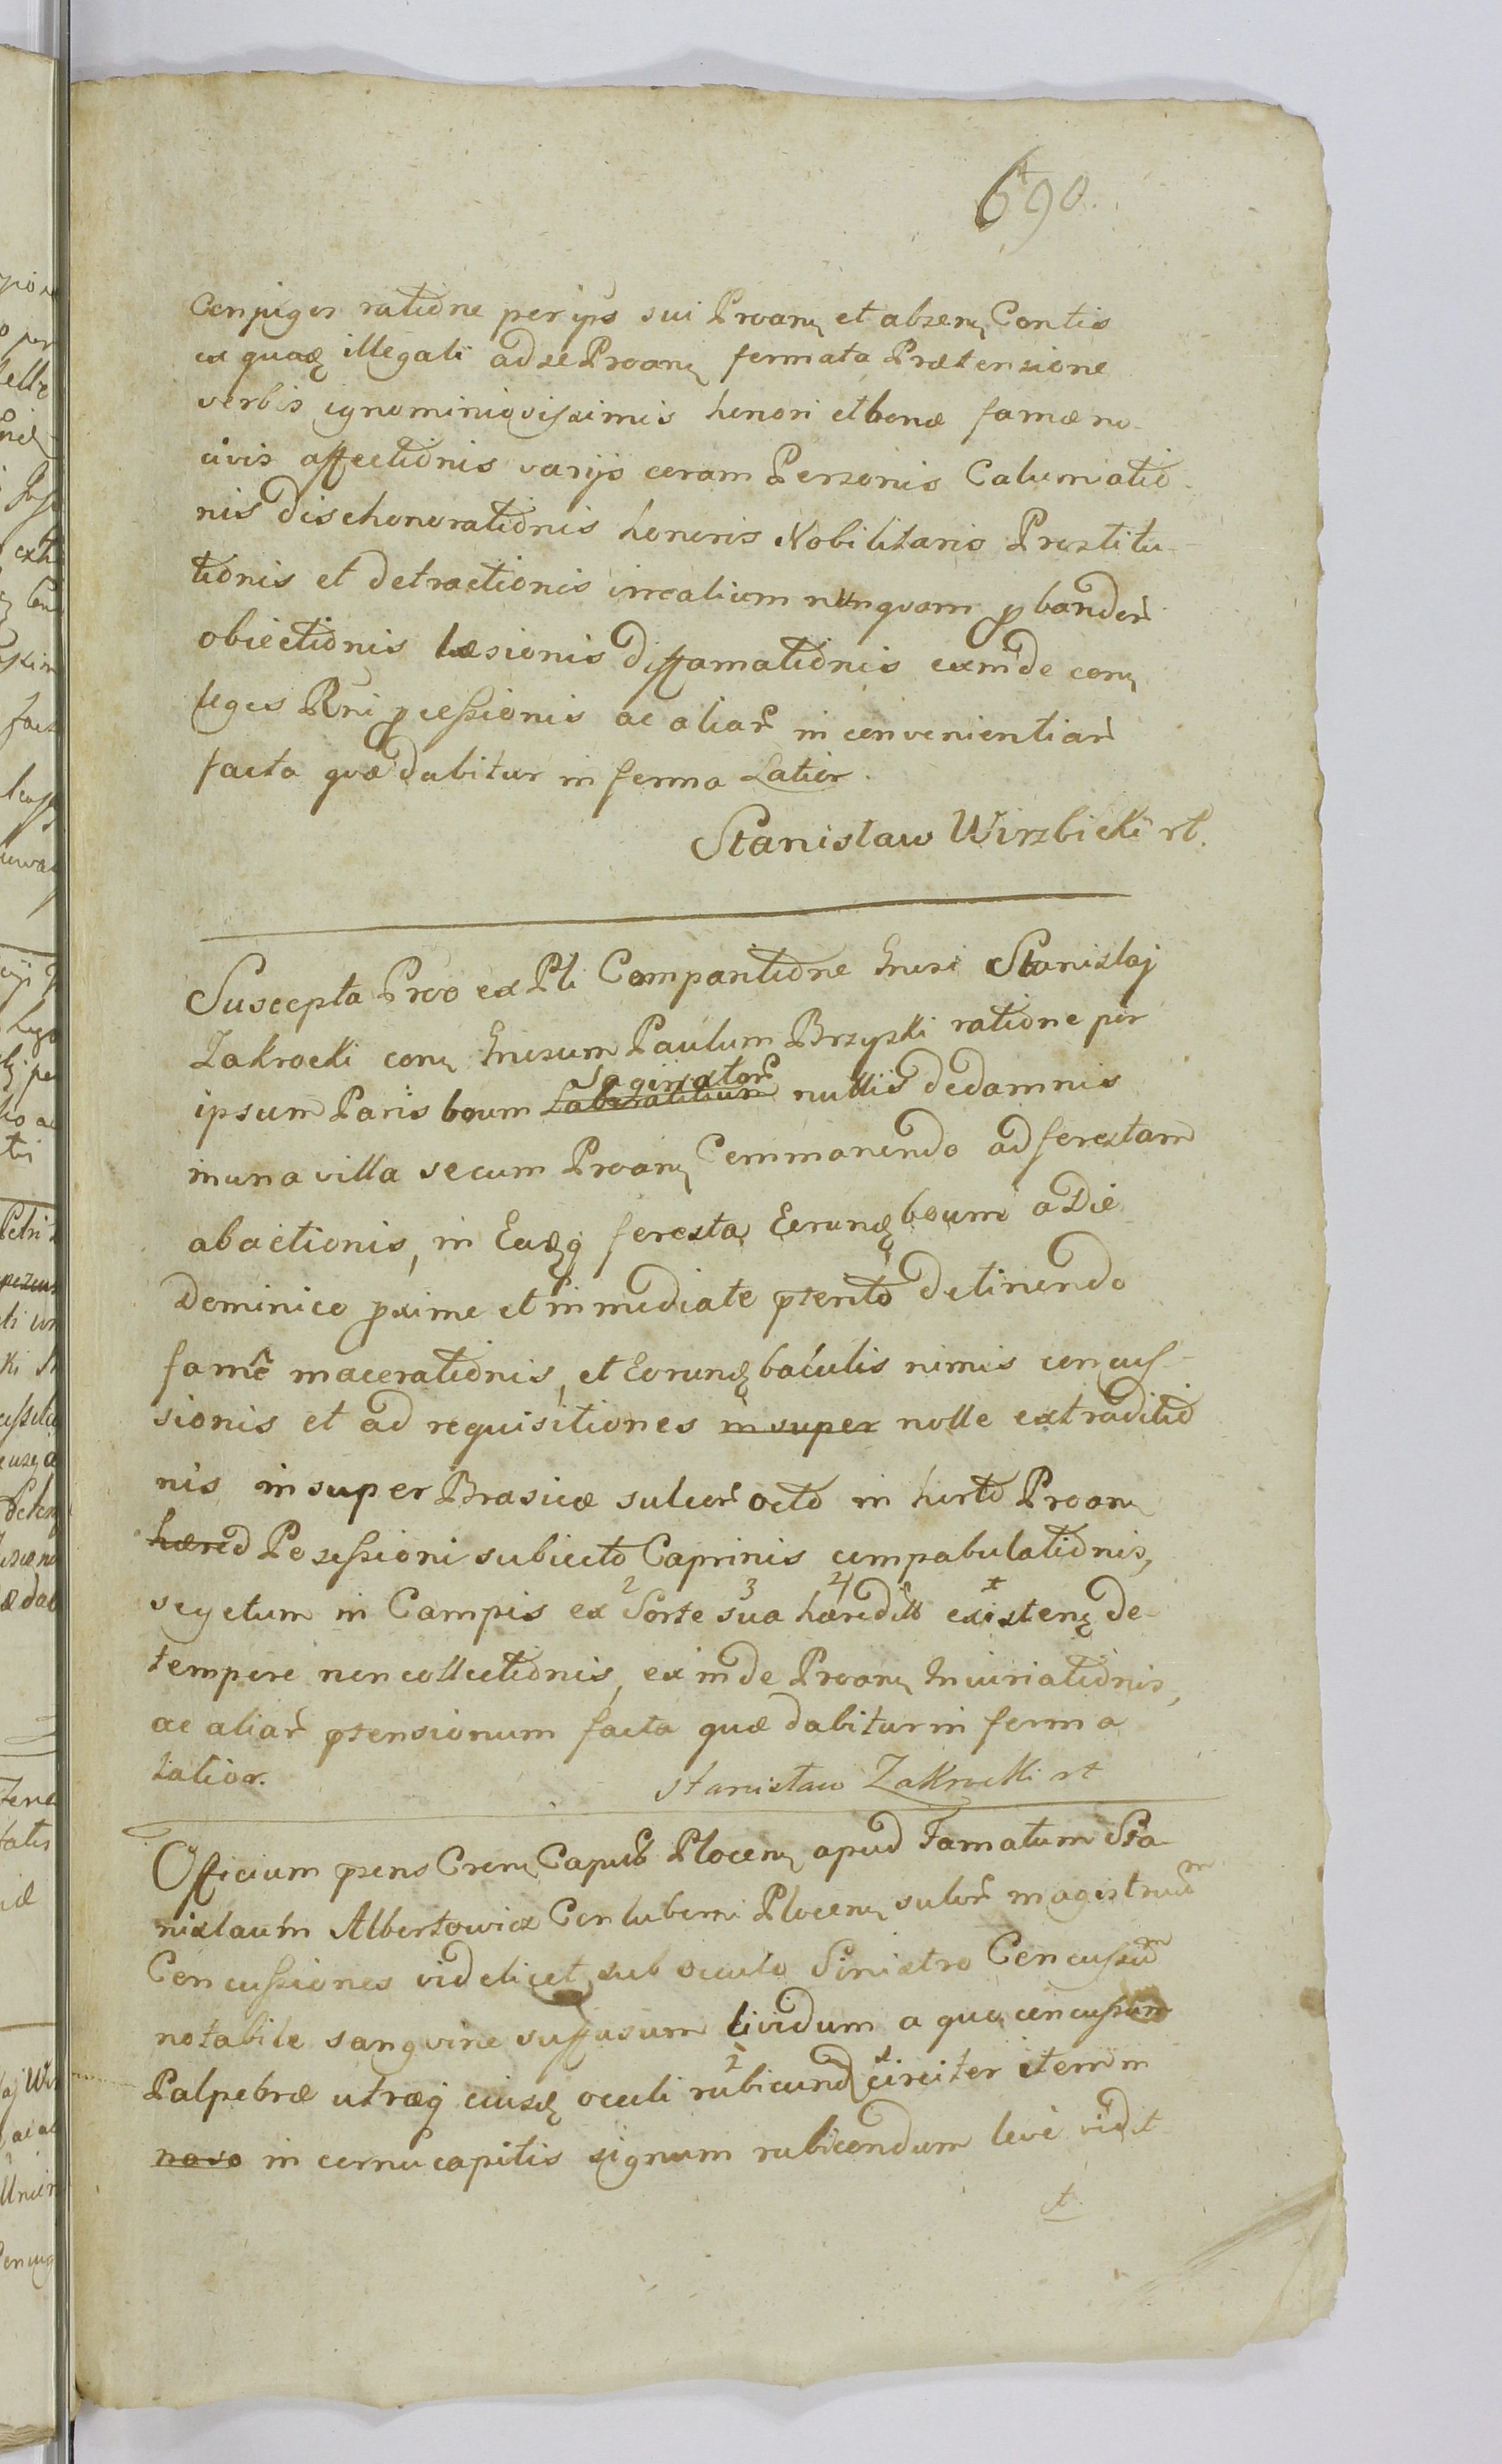 690.
Conjuges ratione per ips sui Proanę et absenę Contis
ex quaę illegali ad se Proanę formata Prætensione
verbis ignominiosissimis honori et bonæ famæ no-
civis affectionis varijs coram Personis Calumnatio-
nis dishonorationis honoris Nobilitaris Prostitu-
tionis et detractionis irrealium nunquam pbandor
obiectionis læsionis diffamationis exinde conę
leges Rni pcessionis ac aliar inconvenientiar
facta quæ dabitur in forma Latior.
Stanisław Wirzbicki rt.
Suscepta Proo ex Pti Compantione Gnrsi Stanislaj
Zakrocki conę Gnrsum Paulum Brzyski ratione per
saginator
ipsum Paris boum Laboratitium nullis de damnis
in una villa secum Proanę Commonendo ad forestam
abactionis, in Eaęq foresta Eorunę boum a Die
Dominico pxime et immediate pterito detinendo
fame macerationis, et Eorunę baculis nimis concus-
sionis et ad requisitiones insuper nolle extraditio
nis insuper Brasicæ sulcor octo in horto Proanę
hæred Possessioni subiecto Caprinis compabulationis,
2 3 4 1
segetum in Campis ex Sorte sua hæredit existenę de
tempore non collectionis, exinde Proanę Iniuriationis,
ac aliar ptensionum facta quæ dabitur in forma
latior.
Stanisław Zakrocki rt
Officium psens Crenę Capti Plocenę apud Famatum Sta
nislaum Albertowicz Contuberni Plocenę sutor magistrum
Concussiones videlicet sub oculo Sinistro Concussum
notabile sangvine suffusum lividum a quo concussum
2 1
Palpebræ utræq eiusdę oculi rubicund circiter item in
naso in cornu capitis signum rubicondum leve vidit
et